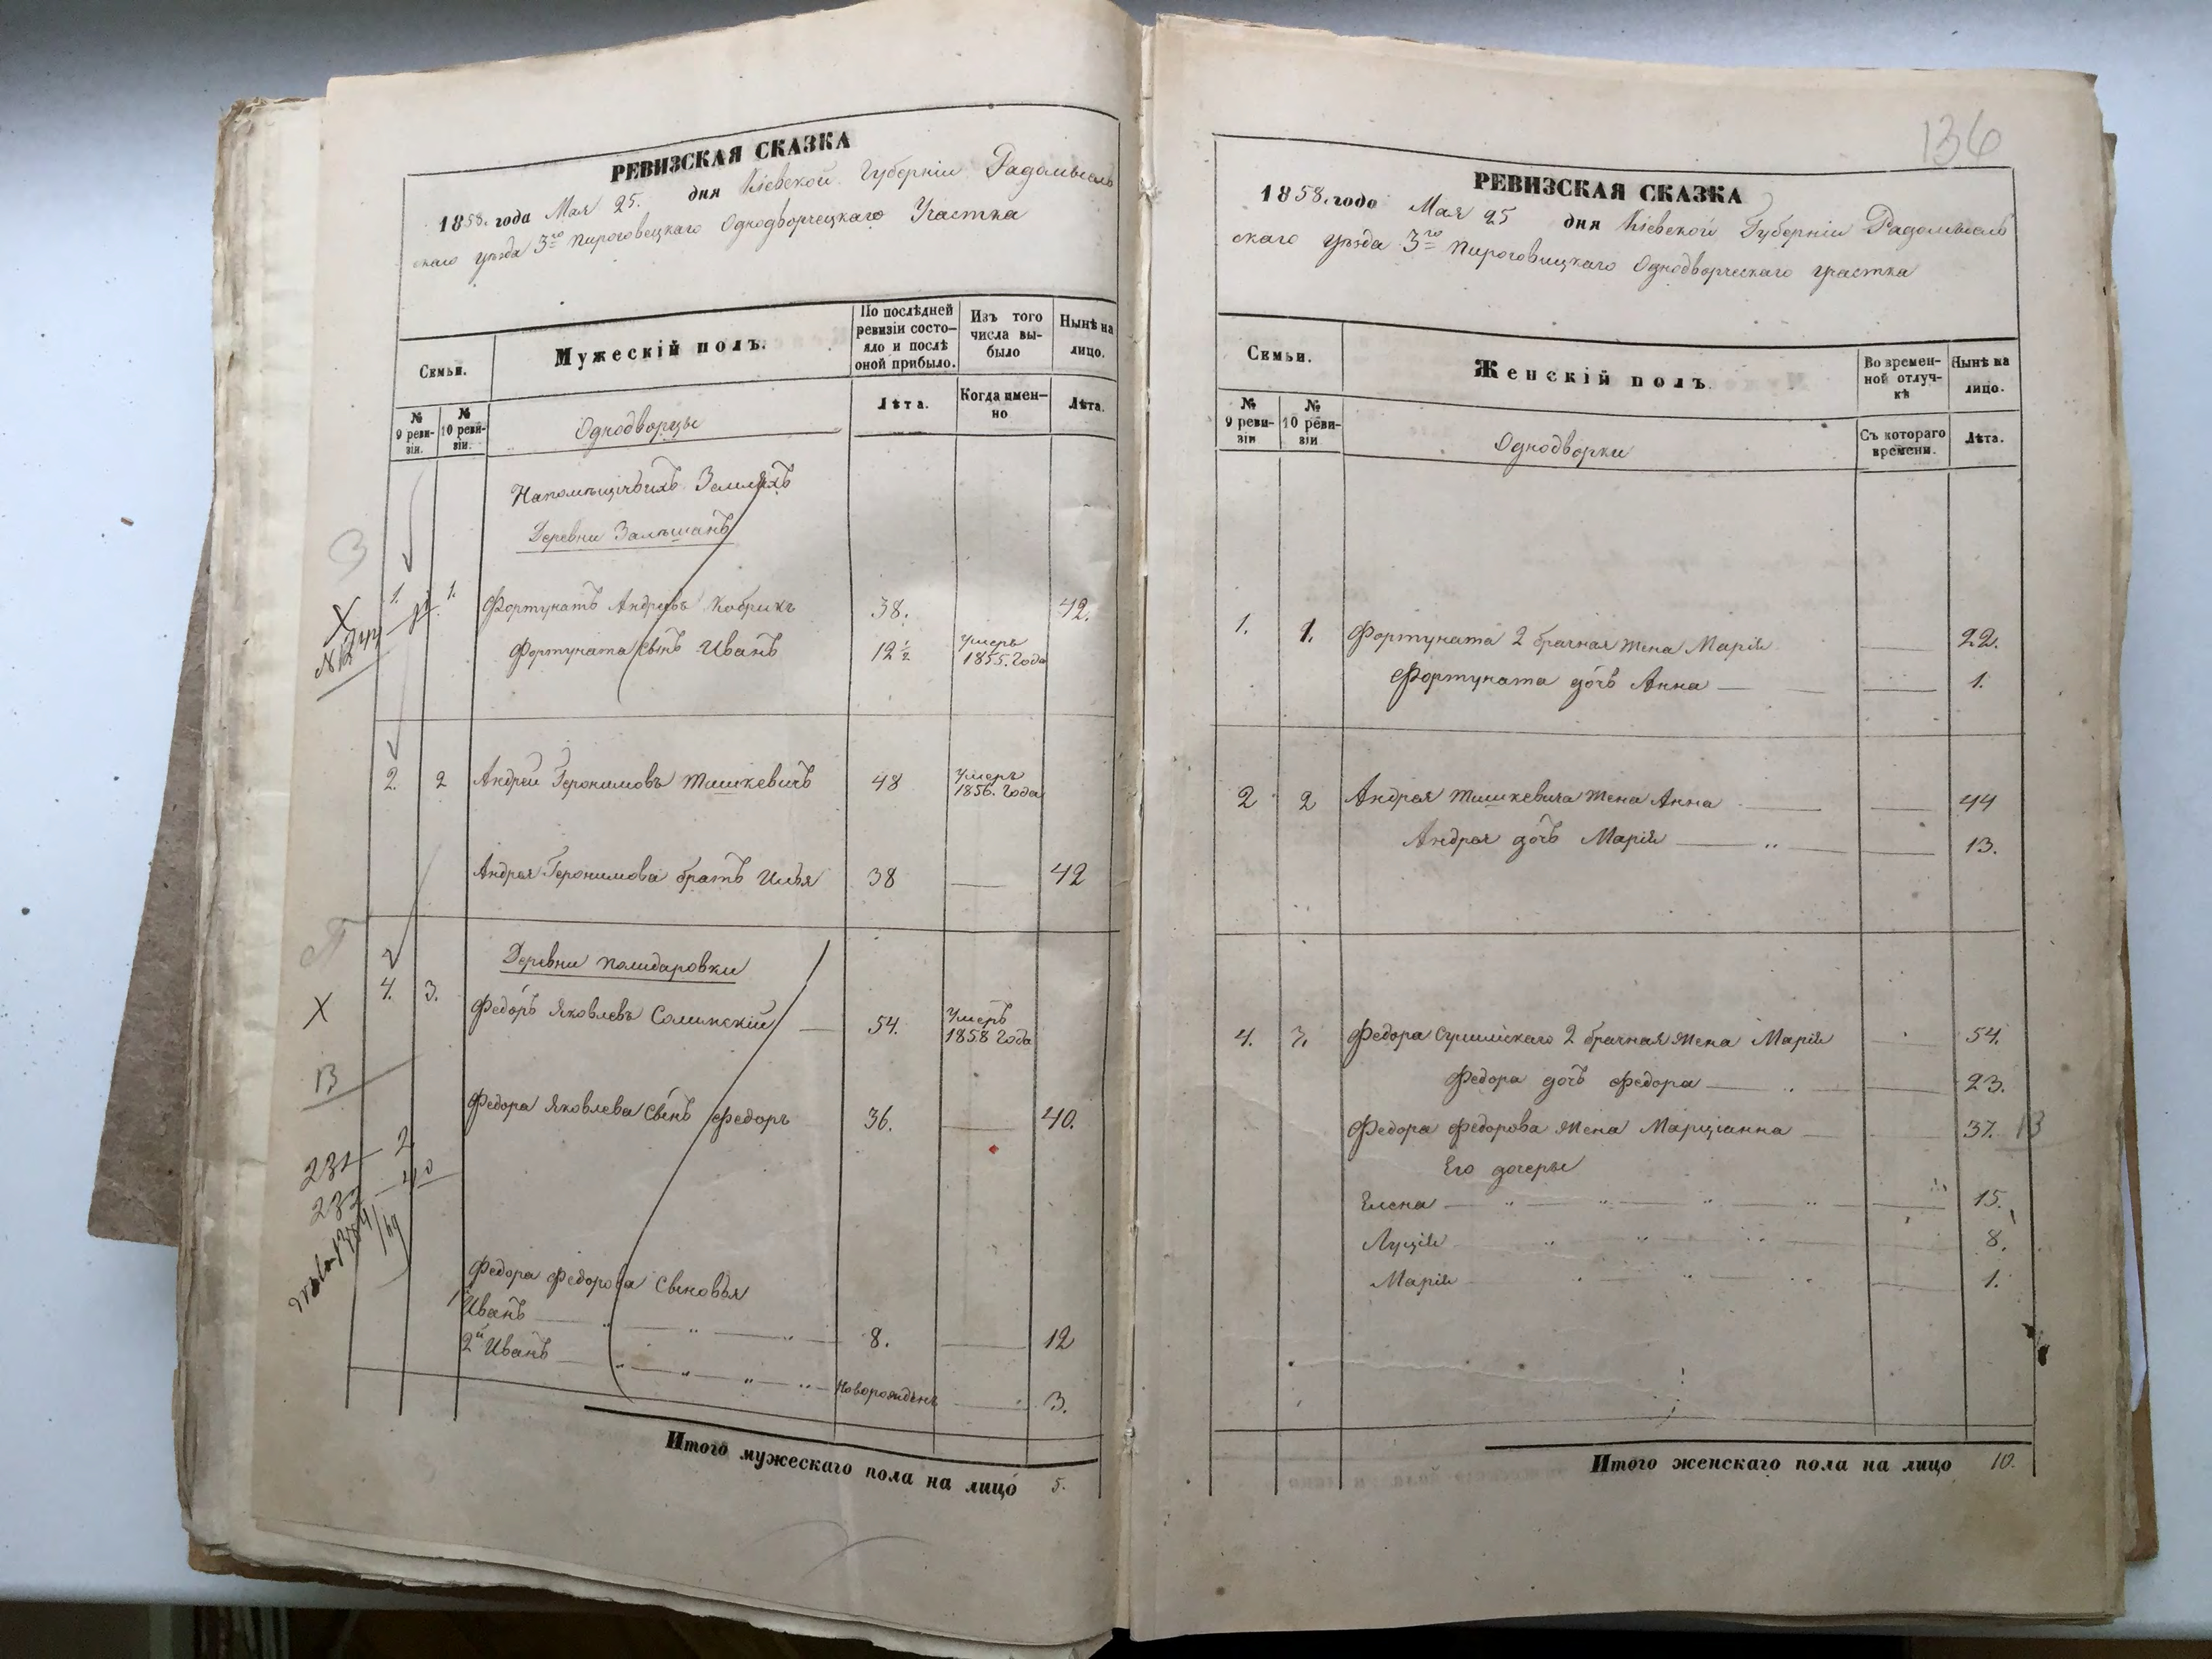 РЕВИЗСКАЯ СКАЗКА
1858. года Мая 25. дня Кіевской Губерніи Радомысль
скаго уѣзда 3го Пироговецкаго Однодворческаго Участка
Семьи.
Мужескій полъ.
По послѣдней ревизіи состояло и послѣ оной прибыло.
Изъ того числа выбыло
Нынѣ на лицо.
№ 9 ревизіи.
№ 10 ревизіи.
Однодворцы
Лѣта.
Когда именно
Лѣта.
Напомѣщичьихъ Земляхъ
Деревни Залѣшанъ
1. 1. Фортунатъ Андреевъ Кобрикъ 38. 42.
Фортуната сынъ Иванъ 12½ Умеръ 1855. Года
2. 2 Андрей Геронимовъ Тишкевичъ 48 Умеръ 1856. Года
Андрея Геронимова братъ Илья 38 — 42
Деревни Полидаровки
4. 3. Федоръ Яковлевъ 54. Умеръ 1858 Года
Федора Яковлева Сынъ Федоръ 36. — 40.
Федора Федорова Сыновья
1й Иванъ — 8. — 12
2й Иванъ — Новорожденъ — 3.
Итого мужескаго пола на лицо 5.
136
РЕВИЗСКАЯ СКАЗКА
1858. года Мая 25 дня Кіевской Губерніи Радомысль
скаго уѣзда 3го Пироговицкаго Однодворческаго участка
Семьи.
Женскій полъ.
Во временной отлучкѣ
Нынѣ на лицо.
№ 9 ревизіи
№ 10 ревизіи
Однодворки
Съ котораго времени.
Лѣта.
1. 1. Фортуната 2 брачная жена Марія — 22.
Фортуната дочь Анна — 1.
2 2 Андрея Тишкевича жена Анна — 44
Андрея дочь Марія — 13.
4. 3. Федора 2 брачная жена Марія — 54.
Федора дочь Федора — 23.
Федора Федорова жена Марціанна — 37.
Его дочери
Елена — 15.
Луція — 8.
Марія — 1.
Итого женскаго пола на лицо 10.